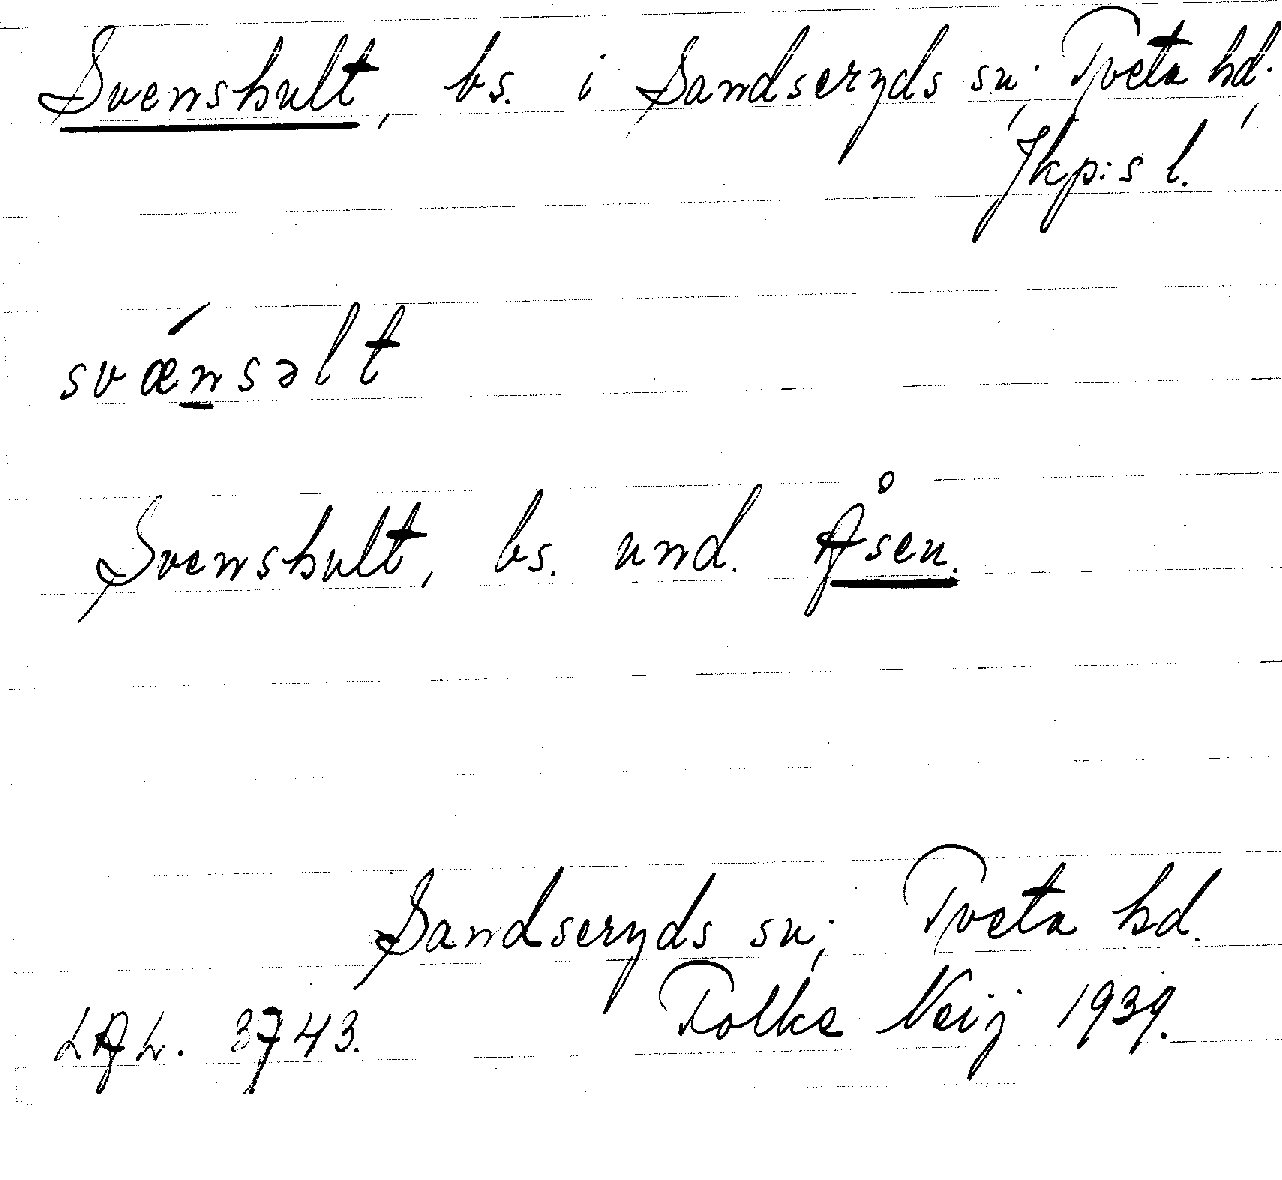 Svenshult, bs. i Sandseryds sn; Tveta hd.,
Jkp:s l.
svǽnsəlt
Svenshult, bs. und. Åsen.
Sandseryds sn; Tveta hd.
LAL. 3743. Folke Neij 1939.